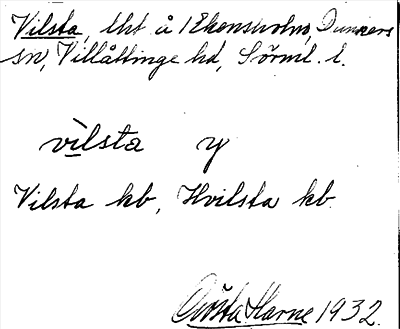 Vilsta, lht å 1 Ekensholm, Dunkers
sn, Villåttinge hd, Sörml. l.
vìlsta y
Vilsta kb, Hvilsta kb.
Gösta Harne 1932.